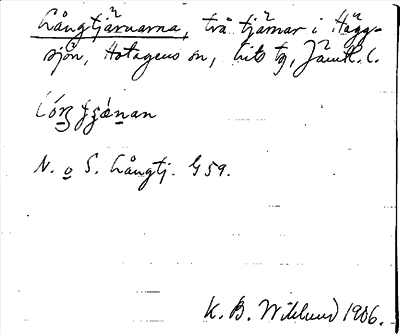 Långtjärnarna, två tjärnar i Hägg-
sjön, Hotagens sn, Lits tg, Jämtl. l.
N. o S. Långtj. G 59.
K. B. Wiklund 1906.